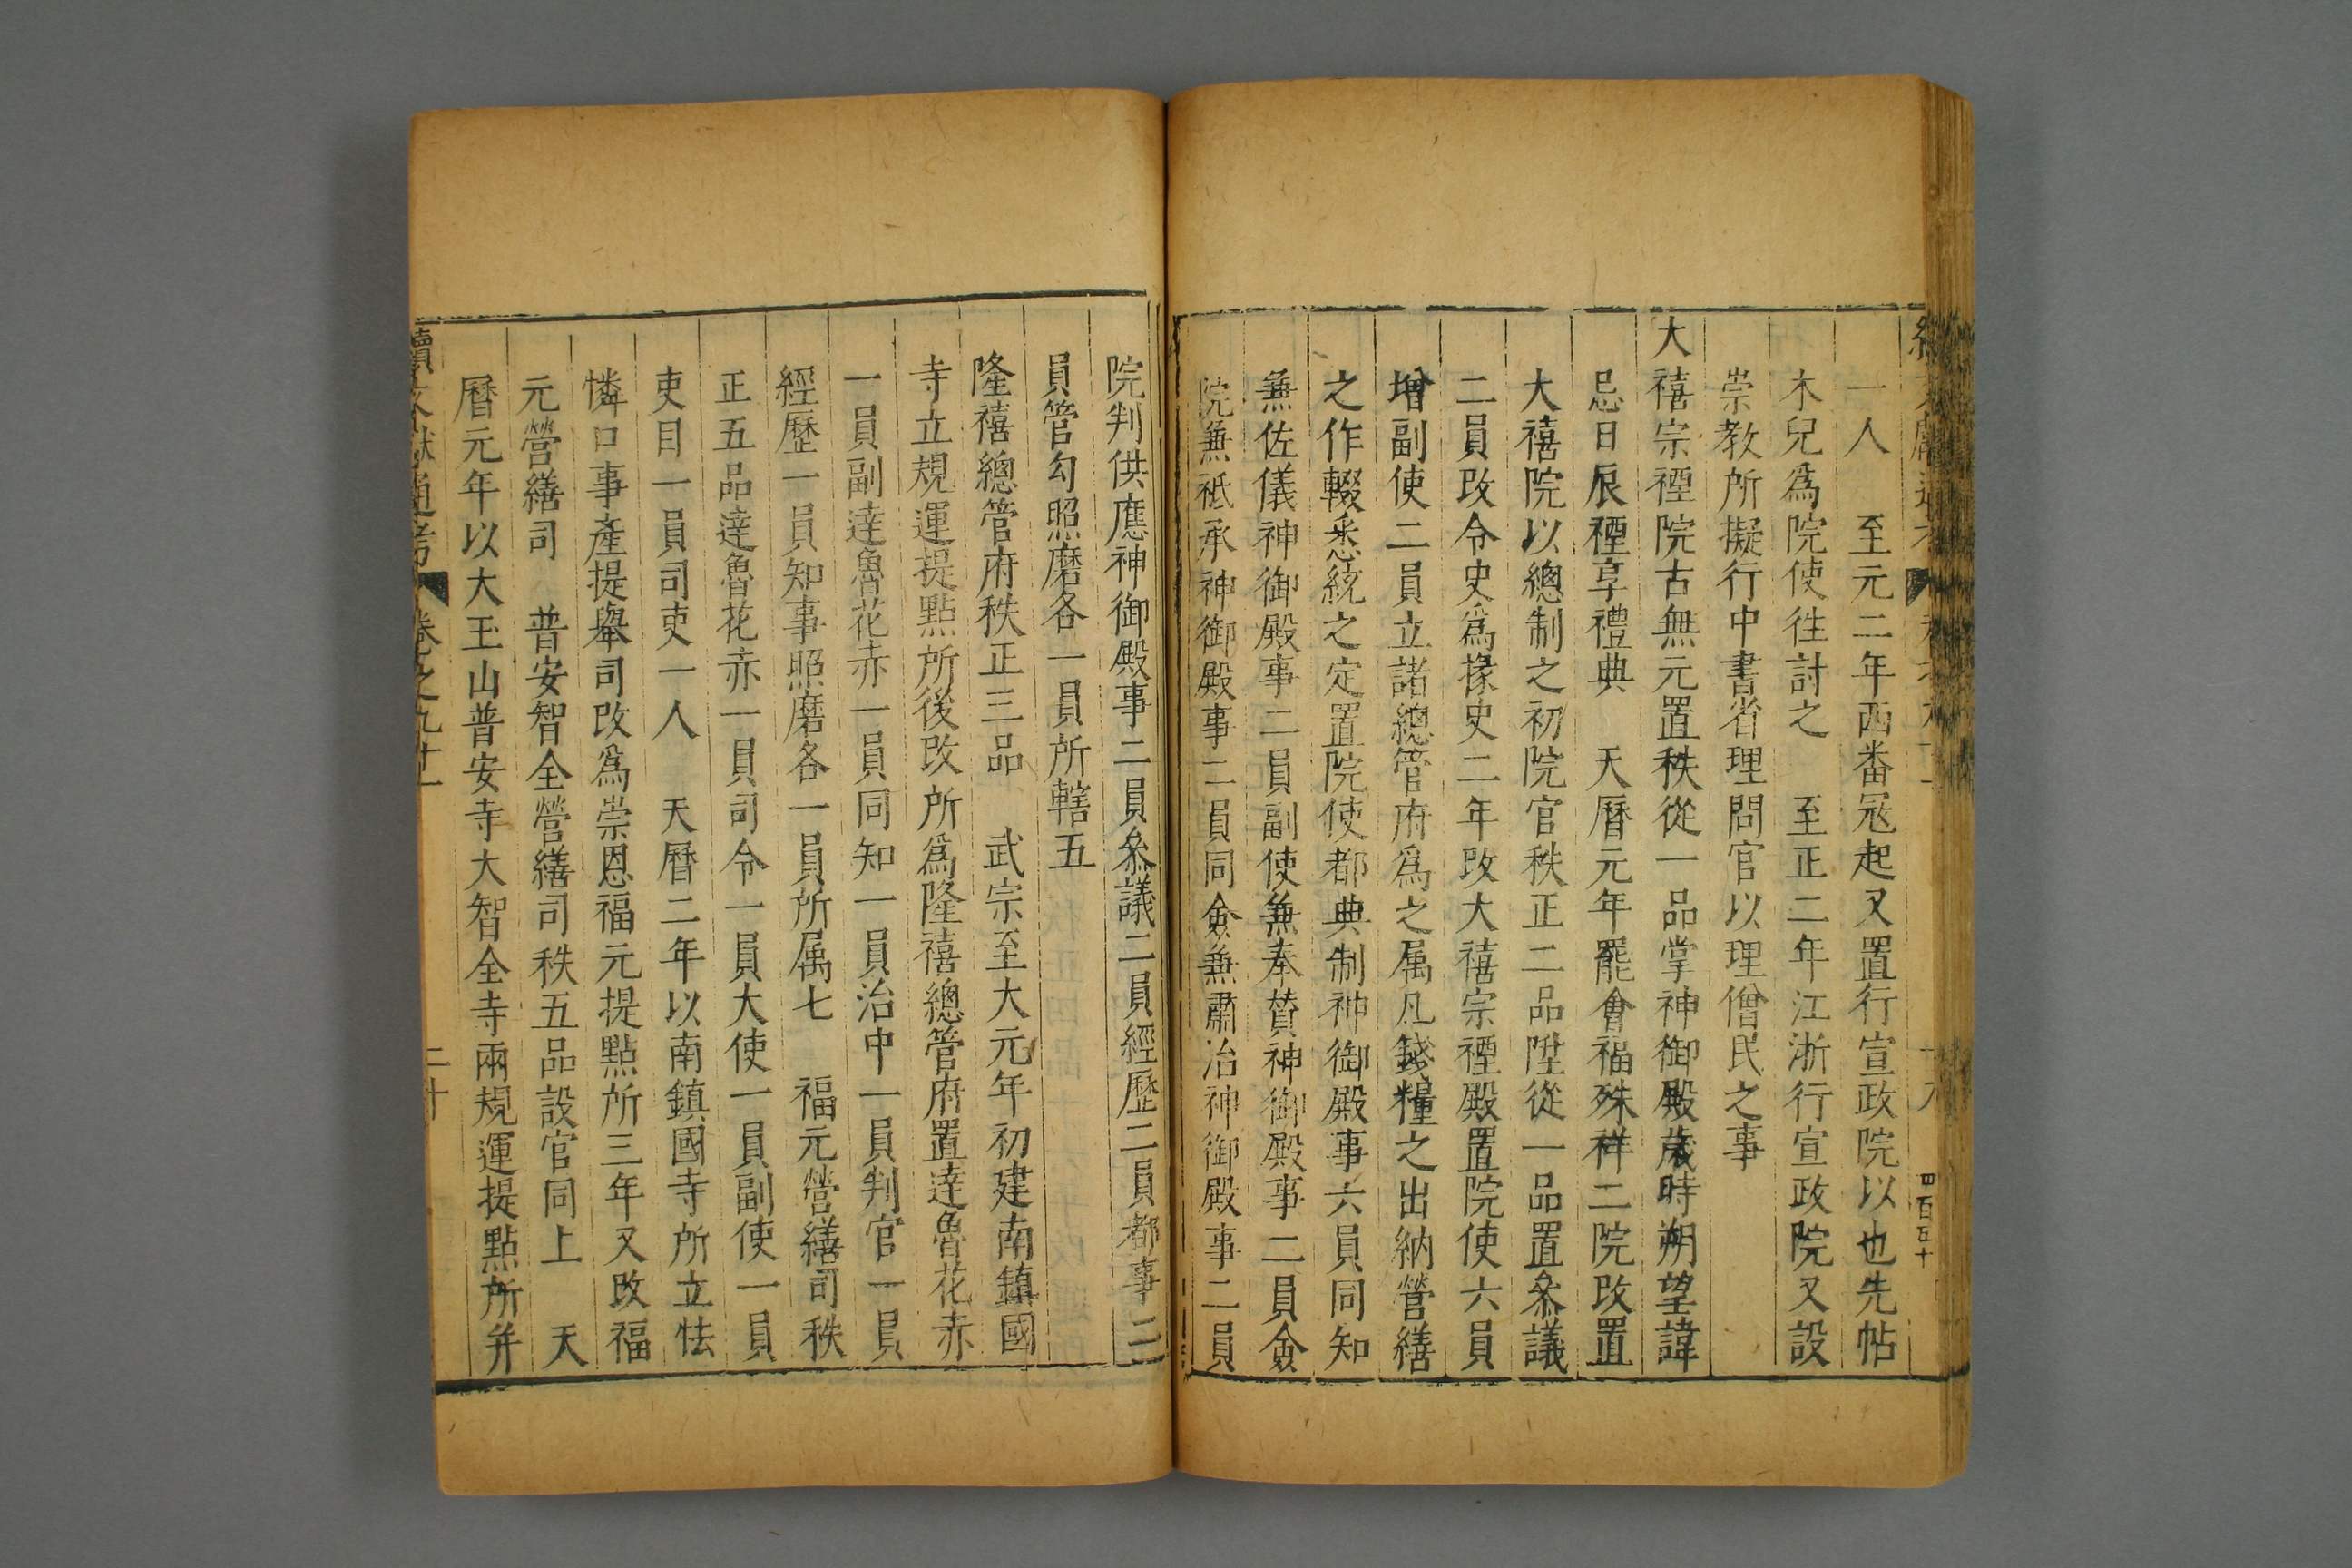 一人　至元二年西番冦起又置行宣政院以也先帖
木兒爲院使徃討之　至正二年江浙行宣政院又設
崇教所擬行中書省理問官以理僧民之事
大禧宗禋院古無元置秩從一品掌神御殿歲時朔望諱
忌日辰禋享禮典　天曆元年罷會福殊祥二院改置
大禧院以總制之初院官秩正二品陞從一品置叅議
二員改令史爲掾史二年改大禧宗禋殿置院使六員
增副使二員立諸總管府爲之属凡錢糧之出納營繕
之作輟悉統之定置院使都典制神御殿事六員同知
兼佐儀神御殿事二員副使兼奉贊神御殿事二員僉
院兼祗承神御殿事二員同僉兼肅治神御殿事二員
院判供應神御殿事二員叅議二員經歷二員都事二
員管勾照磨各一員所轄五
隆禧總管府秩正三品　武宗至大元年初建南鎮國
寺立規運提點所後改所爲隆禧總管府置達魯花赤
一員副達魯花赤一員同知一員治中一員判官一員
經歷一員知事照磨各一員所属七　福元營繕司秩
正五品達魯花赤一員司令一員大使一員副使一員
吏目一員司吏一人　天曆二年以南鎮國寺所立怯
憐口事產提舉司改爲崇恩福元提點所三年又改福
元營繕司　普安智全營繕司秩五品設官同上　天
曆元年以大玉山普安寺大智全寺兩規運提點所并
續文獻通考　卷之九十一　二十
四百五十